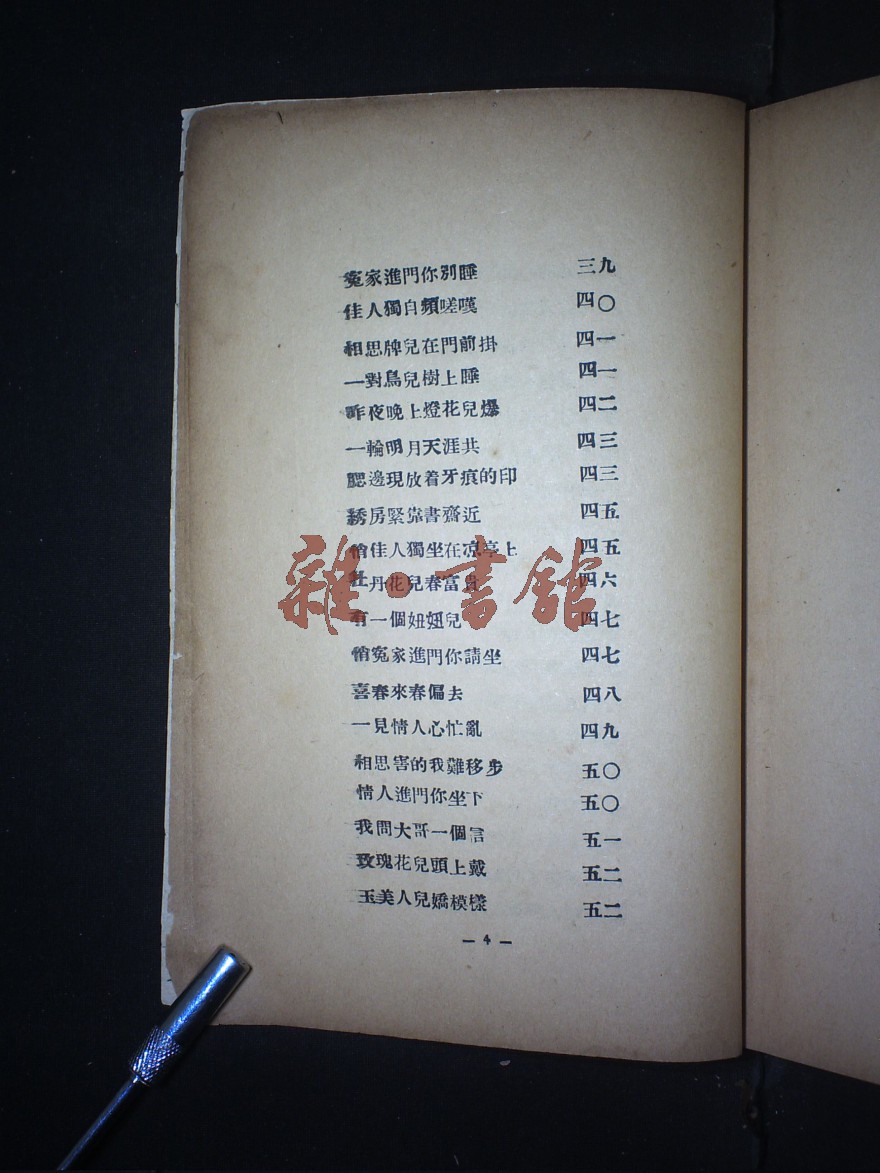 寃家進門你別睡 三九
佳人獨自頻嗟嘆 四〇
相思牌兒在門前掛 四一
一對鳥兒樹上睡 四一
昨夜晚上燈花兒爆 四二
一輪明月天涯共 四三
腮邊現放着牙痕的印 四三
綉房緊靠書齋近 四五
俏佳人獨坐在凉亭上 四五
牡丹花兒春富貴 四六
有一個妞妞兒 四七
悄寃家進門你請坐 四七
喜春來春偏去 四八
一見情人心忙亂 四九
相思害的我難移步 五〇
情人進門你坐下 五〇
我問大哥一個言 五一
玫瑰花兒頭上戴 五二
玉美人兒嬌模樣 五二
— 4 —
雜·書館